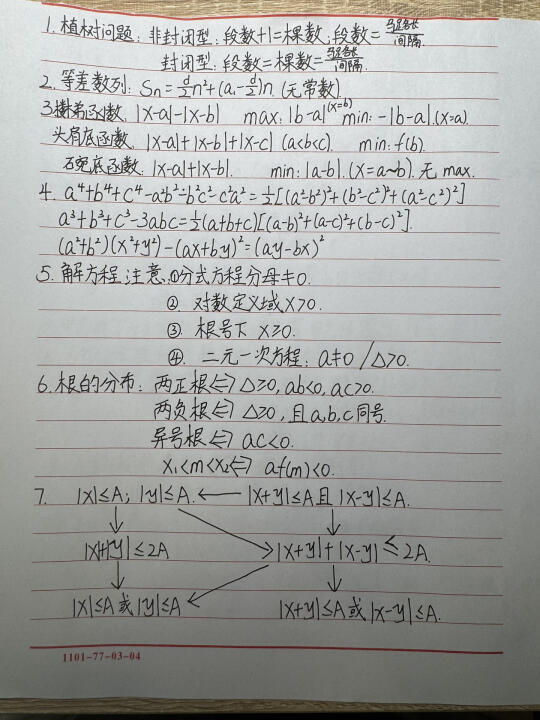 1. 植树问题: 非封闭型: 段数+1=棵数, 段数=路总长/间隔.
封闭型: 段数=棵数=路总长/间隔.
2. 等差数列: Sn=d/2n²+(a₁-d/2)n (无常数)
3. 函数. |x-a|-|x-b| max: |b-a|(x=b) min: -|b-a|.(x=a).
头肩底函数. |x-a|+|x-b|+|x-c| (a<b<c). min: f(b).
碗底函数. |x-a|+|x-b|. min: |a-b|.(x=a~b). 无 max.
4. a⁴+b⁴+c⁴-a²b²-b²c²-c²a²=½[(a²-b²)²+(b²-c²)²+(a²-c²)²]
a³+b³+c³-3abc=½(a+b+c)[(a-b)²+(a-c)²+(b-c)²].
(a²+b²)(x²+y²)-(ax+by)²=(ay-bx)²
5. 解方程注意: ①分式方程分母≠0.
② 对数定义域x>0.
③ 根号下 x≥0.
④. 二元一次方程: a≠0 / △>0.
6. 根的分布: 两正根⇔△≥0, ab<0, ac>0.
两负根⇔△≥0, 且a,b,c同号.
异号根⇔ac<0.
x₁<m<x₂⇔af(m)<0.
7. |x|≤A; |y|≤A. ← |x+y|≤A且|x-y|≤A.
|x|+|y|≤2A |x+y|+|x-y|≤2A.
|x|≤A或|y|≤A |x+y|≤A或|x-y|≤A.
1101-77-03-04